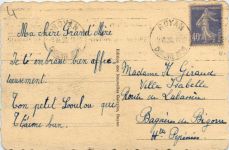 ROYAN
Ma chère Grand'Mère
Je t'embrasse bien affec
tueusement.
Ton petit Loulou qui
t'aime bien.
Madame H. Giraud
Villa Isabelle
Route de Labassère
Bagnères de Bigorre
Htes Pyrénées